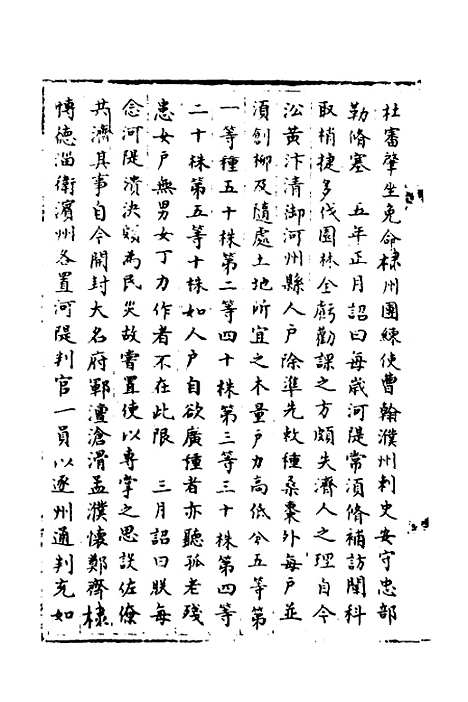 杜審肇坐免命棣州團練使曹翰濮州刺史安守忠部
勒脩塞　五年正月詔曰每歲河隄常湏脩補訪聞科
取梢揵多伐園林全虧勸課之方頗失濟人之理自今
沿黃汴清御河州縣人户除準先敕種桑棗外每户並
湏創柳及隨處土地所宜之木量户力髙低分五等第
一等種五十株第二等四十株第三等三十株第四等
二十株第五等十株如人户自欲廣種者亦聽孤老殘
患女户無男女丁力作者不在此限　三月詔曰朕每
念河隄潰決頗為民災故嘗置使以專掌之思設佐僚
共濟其事自今開封大名府鄆澶滄滑孟濮懷鄭齊棣
博德淄衛濱州各置河隄判官一員以逐州通判充如